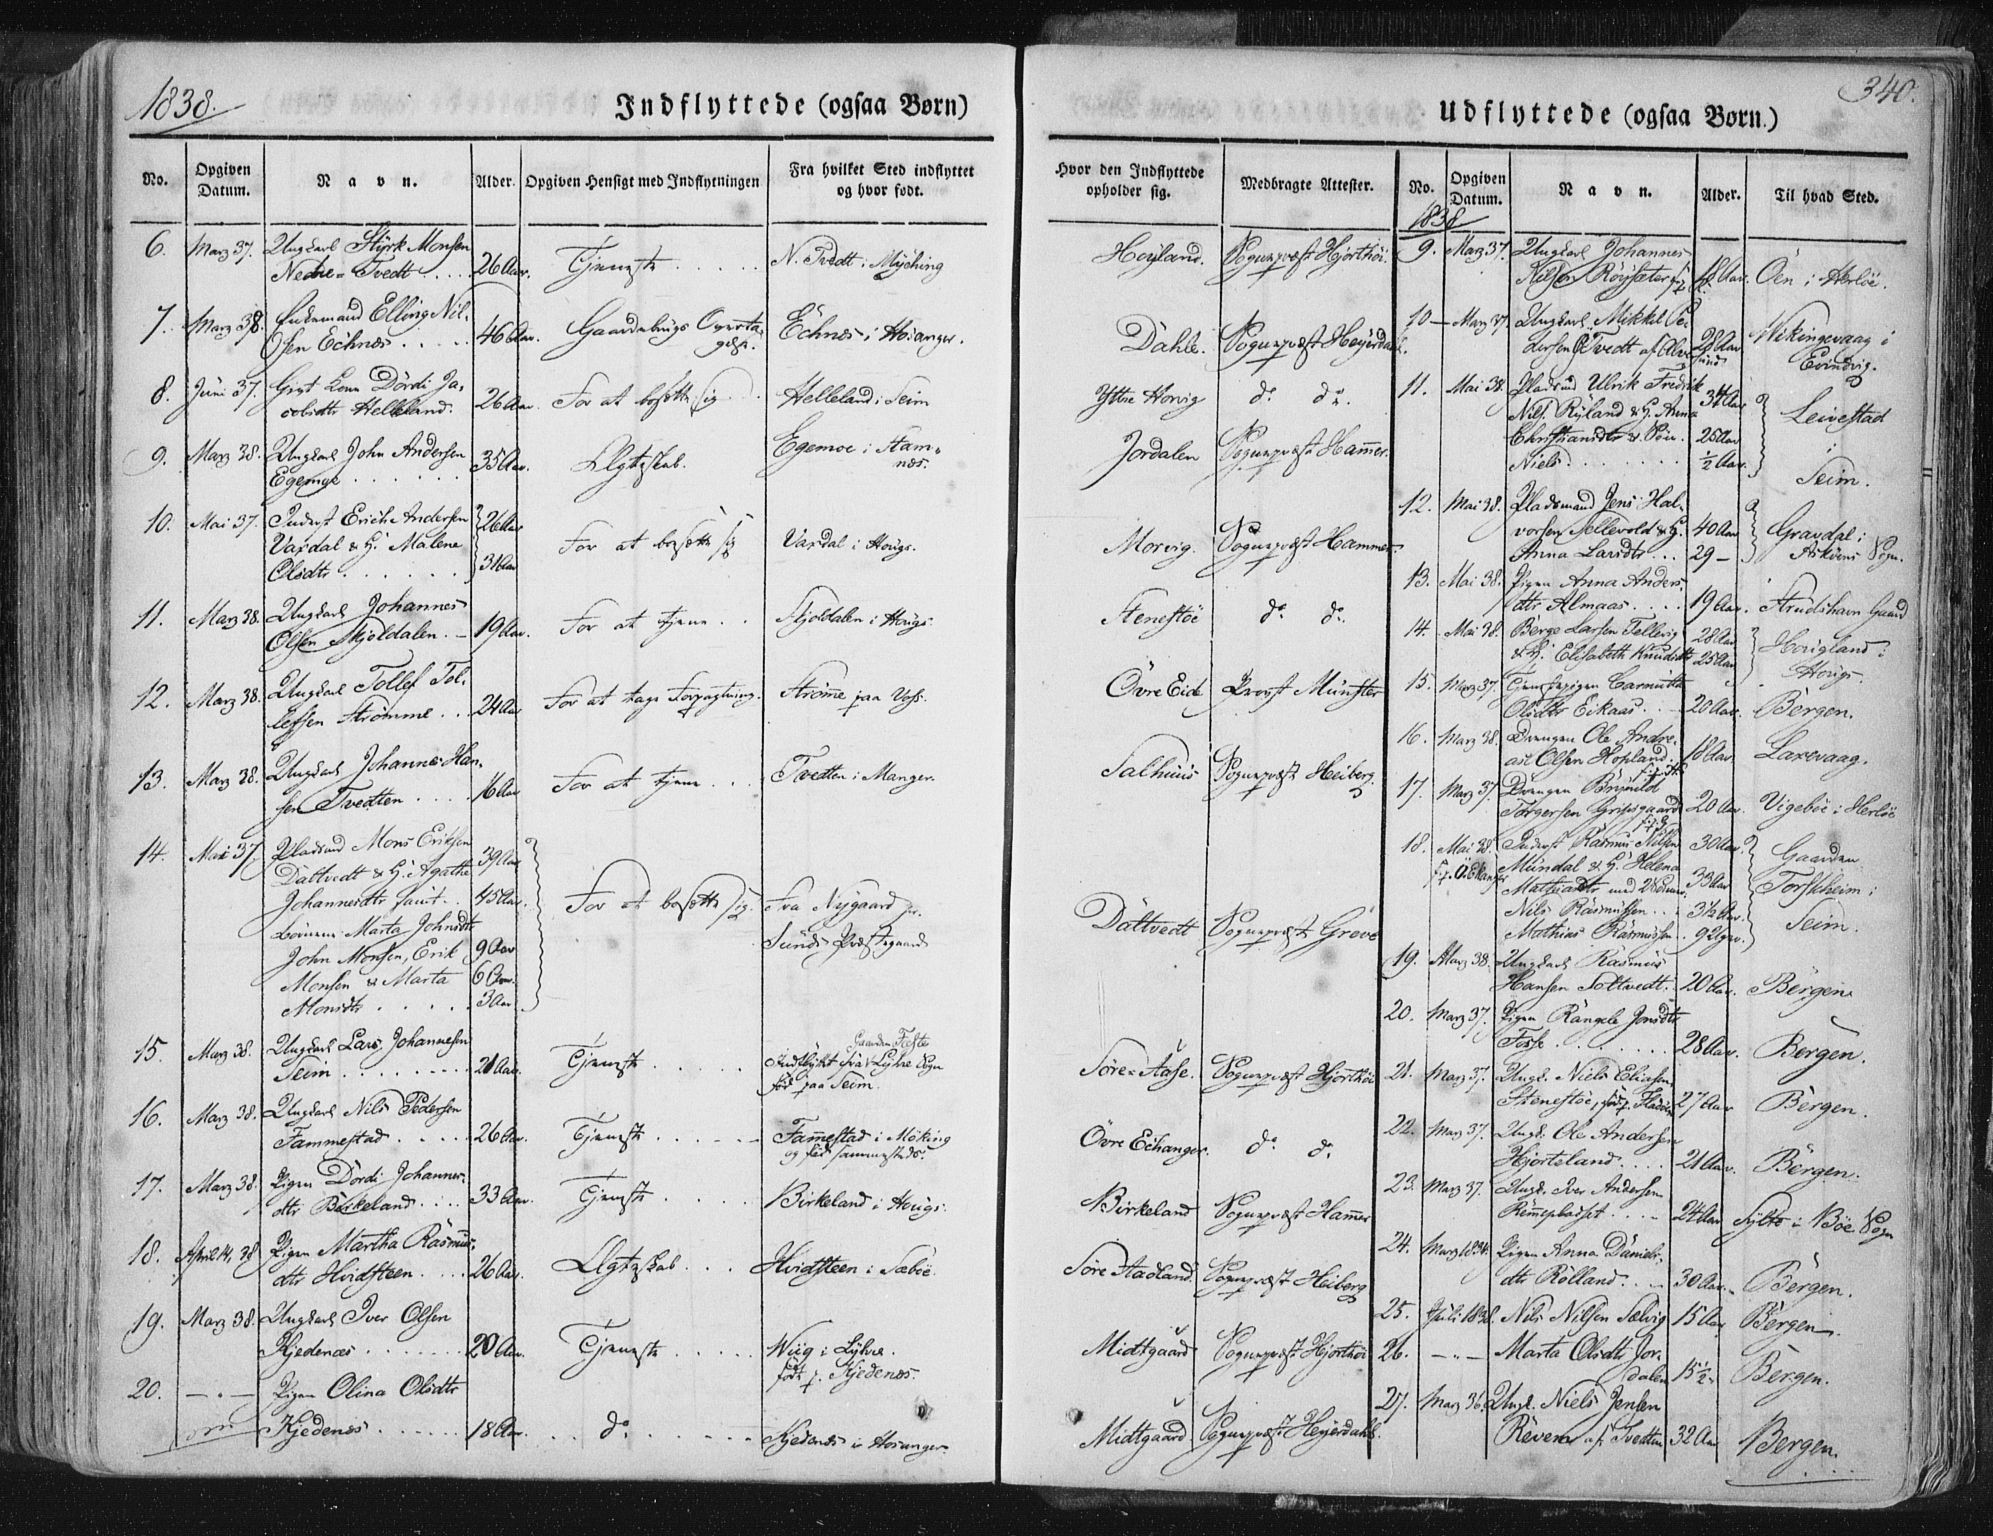 1838.
Indflyttede (ogsaa Børn)
No.
Opgiven Datum.
Navn.
Alder.
Opgiven Hensigt med Indflytningen
Fra hvilket Sted indflyttet og hvor født.
6. Marz 37. Ungkarl Styrk Monsen
Nedre Tvedt . . . 26 Aar. Tjeneste . . . . . N. Tvedt i Myching
7. Marz 38. Enkemand Elling Nil-
sen Echnes . . . . . 46 Aar. Gaardebrugs Overta- Echnes i Hosanger.
gelse.
8. Juni 37. Gift Kone Dördi Ja-
cobsdtr Helleland. 26 Aar. For at bosætte sig . Helleland i Seim
9. Marz 38. Ungkarl John Andersen
Egemoe . . . . . . 35 Aar. Ægteskab. Egemoe i Ham-
nes.
10. Mai 37. Inderst Erich Andersen 26 Aar
Vaxdal & H. Malene For at bosætte sig Vaxdal i Hougs.
Olsdtr . . . . . . 31 Aar
11. Marz 38. Ungkarl Johannes
Olsen Skjoldalen . 19 Aar. For at tjene . . Skjoldalen i Hougs.
12. Marz 38. Ungkarl Tollef Tol-
lefsen Strömme . . 24 Aar For at tage Forpagtning. Ströme paa Voss.
13. Marz 38. Ungkarl Johannes Han-
sen Tvedten . . . . 16 Aar For at tjene . . . Tvedten i Manger.
14. Mai 37. Pladsmd Mons Eriksen 39 Aar
Dattvedt & H. Agathe
Johannesdtr samt . . 45 Aar. For at bosætte sig. Fra Nygaard pr.
Börnene Marta Johnsdtr Sunds Præstegaard
John Monsen, Erik 9 Aar
Monsen & Marta 6 Aar.
Monsdtr . . . . . 3 Aar
15. Marz 38. Ungkarl Lars Johannesen Gaarden
Seim . . . . . . . . 21 Aar. Tjeneste . . . . . Indflyttet fra Lyhne Sogn
föd paa Seim.
16. Marz 38. Ungkarl Nils Pedersen
Fammestad . . . . . 26 Aar. Tjeneste . . . . . Famestad i Möking
og föd sammesteds.
17. Marz 38. Pigen Dördi Johannes-
dtr Birkeland . . . . 33 Aar. Tjeneste . . . . Birkeland i Hougs.
18. April 14, 38 Pigen Martha Rasmus-
dtr Hvidsteen . . . . 26 Aar. Ægteskab . . . Hvidsteen i Sæböe.
19. Marz 38. Ungkarl Iver Olsen
Kjedenæs . . . . . . 20 Aar. Tjeneste . . . . . Wiig i Lyhne.
födt p. Kjedenæs.
20. — „ — Pigen Olina Olsdtr
Kjedenæs . . . . . . 18 Aar. . . do . . . . . Kjedenæs i Hosanger.
340.
Udflyttede (ogsaa Børn.)
Hvor den Indflyttede opholder sig.
Medbragte Attester.
No.
Opgiven Datum.
Navn.
Alder.
Til hvad Sted.
Heyland. Sognepræst Hjorthöi.
Dahle. Sognepræst Heyerdahl.
Yttre Horvig do do.
Jordalen Sognepræst Hammer.
Morvig. Sognepræst Hammer.
Stenestöe do do.
Övre Eide Provst Münster
Salhuus Sognepræst Heiberg
Dattvedt Sognepræst Greve
Söre Aase. Sognepræst Hjorthöi
Övre Eichanger. do do
Birkeland Sognepræst Hammer
Söre Aadland. Sognepræst Heiberg
Midtgaard Sognepræst Hjorthöi
Midtgaard Sognepræst Heyerdahl.
1838
9. Marz 37. Ungkarl Johannes
Nilsen Röysæter 18 Aar. Öen i Herlöe.
10 — Marz 37. Ungkarl Mikkel Pe-
dersen Tvedt af Alver- 28 Aar Wikingevaag i
sund Evindvig.
11. Mai 38. Pladsmd Ulrik Fredrik
Nils. Ryland & H. Anna 34 Aar Leivestad
Christiansdtr & Sön. 25 Aar i
Niels . . . . . . . ½ Aar. Seim.
12. Mai 38. Pladsmand Jens Hal-
vorsen Tellevold & H. 40 Aar Gravdal i
Anna Larsdtr . . 29 — Asköens Sogn.
13. Mai 38. Pigen Anna Anders-
dtr Almaas . . . . 19 Aar. Strudshavn Gaard
14. Mai 38. Berge Larsen Tellevig 28 Aar Hougland i
& H. Elisabeth Knudsdtr 25 Aar Hougs.
15. Marz 37. Tjenestepigen
Olsdtr Eikaas . . . 20 Aar. Bergen.
16. Marz 38. Drengen Ole Andre-
as Olsen Hopland 18 Aar Laxevaag.
17. Marz 37. Drengen Brynild
Torgersen 20 Aar. Vigeböe i Herlöe
18. Mai 38. Inderst Rasmus Nilsen 30 Aar. Gaarden
Mundal & H. Helena
Mathiasdtr med 2 Sönner, 33 Aar Torskheim i
Nils Rasmussen . . . 3½ Aar. Seim.
Mathias Rasmussen . . 9 Uger.
19. Marz 38. Ungkarl Rasmus
Hansen Soltvedt. 20 Aar. Bergen
20. Marz 37. Pigen Rangele Jonsdtr
Fosse . . . . . . . 28 Aar. Bergen.
21. Marz 37. Ungk. Niels Eliasen
Stenestöe, född p. 27 Aar Bergen.
22. Marz 37. Ungk. Ole Andersen
Hjorteland . . . . 21 Aar. Bergen.
23. Marz 37. Ungk. Iver Andersen
Remepladset . . . 24 Aar Sylte i Böe Sogn
24. Marz 1834. Pigen Anna Daniels-
dtr Rölland . . . 30 Aar. Bergen.
25. Juli 1838. Nils Nilsen Sælvig 15 Aar Bergen.
26. — „ — Marta Olsdtr Jor-
dalen 15½ „ Bergen.
27. Marz 36. Ungk. Niels Jensen
Reven af Tvedten 32 Aar Bergen.